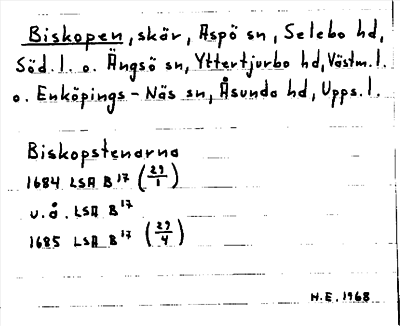 Biskopen, skär, Aspö sn, Selebo hd,
Söd.l. o. Ängsö sn, Yttertjurbo hd, Västm.l.
o. Enköpings-Näs sn, Åsunda hd, Upps.l.
Biskopstenarna
1684 LSA B¹⁷ (29/1)
u.å. LSA B¹⁷
1685 LSA B¹⁷ (29/4)
H.E. 1968